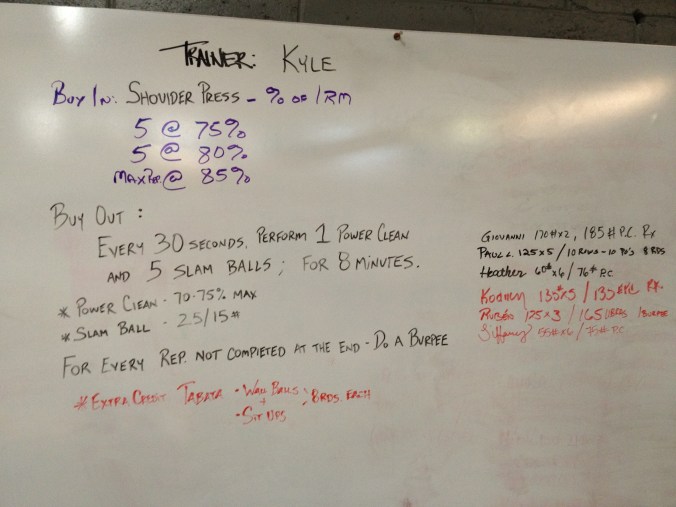 TRAINER: KYLE
BUY IN: SHOULDER PRESS - % OF 1RM
5 @ 75%
5 @ 80%
MAX REP. @ 85%
BUY OUT:
EVERY 30 SECONDS, PERFORM 1 POWER CLEAN
AND 5 SLAM BALLS; FOR 8 MINUTES.
* POWER CLEAN - 70-75% MAX
* SLAM BALL - 25/15#
FOR EVERY REP. NOT COMPLETED AT THE END - DO A BURPEE
* EXTRA CREDIT TABATA - WALL BALLS
+
- SIT UPS
8 RDS. EACH
GIOVANNI 170#x2, 185# P.C. Rx
PAUL L. 125x5 / 10 8 RDS
Heather 60#x6 / 76# P.C
Rodney 135#x5 / 135# P.C Rx.
RUBEN 175x3 / 165
Tiffany 55#x6 / 75# P.C